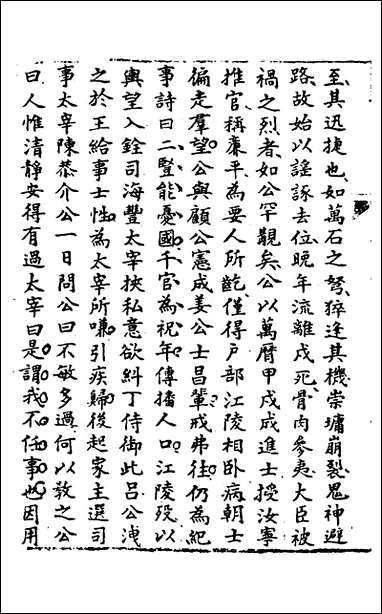 至其迅捷也如萬石之弩猝逢其機崇墉崩裂鬼神避
路故始以謠諑去位晚年流離戍死骨肉參夷大臣被
禍之烈者如公罕覯矣公以萬曆甲戌成進士授汝寧
推官稱廉平為要人所齕僅得戶部江陵相卧病朝士
徧走羣望公與顧公憲成姜公士昌輩戒弗往仍為紀
事詩曰二豎能憂國千官為祝年傳播人口江陵歿以
輿望入銓司海豐太宰挾私意欲糾丁侍御此呂公
之於王給事士性為太宰所嗛引疾歸後起家主選司
事太宰陳恭介公一日問公曰不敏多過何以教之公
曰人惟清靜安得有過太宰曰是謂我不任事也因用